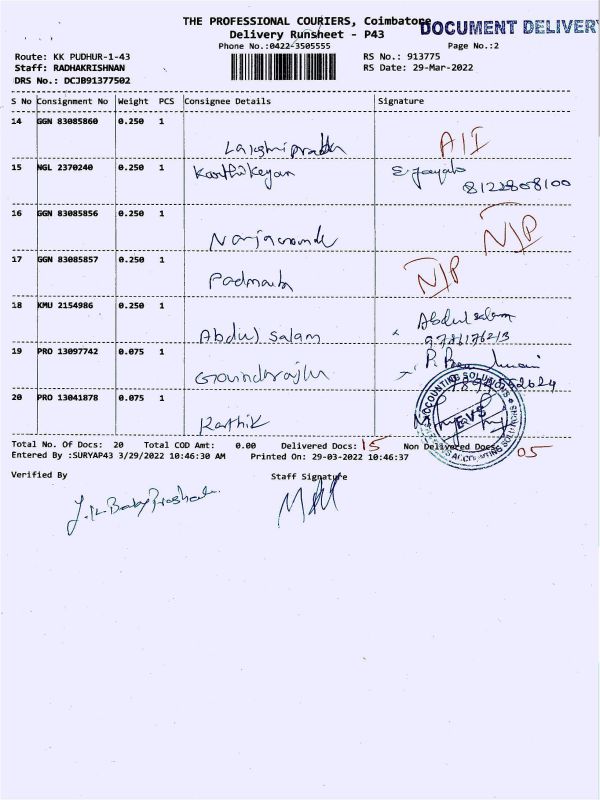 THE PROFESSIONAL COURIERS, Coimbatore
DOCUMENT DELIVERY
Delivery Runsheet - P43
Phone No.:0422-3505555
Page No.:2
Route: KK PUDHUR-1-43
RS No.: 913775
Staff: RADHAKRISHNAN
RS Date: 29-Mar-2022
DRS No.: DCJB91377502
S No Consignment No Weight PCS Consignee Details Signature
14 GGN 83085860 0.250 1
Lakshmi prabha
15 NGL 2370240 0.250 1 Karthikeyan
8122808100
16 GGN 83085856 0.250 1
N/P
17 GGN 83085857 0.250 1 N/P
18 KMU 2154986 0.250 1
Abdul Salam Abdul salam
19 PRO 13097742 0.075 1
20 PRO 13041878 0.075 1
Karthik
ACCOUNTING SOLUTIONS
EVS
Total No. Of Docs: 20 Total COD Amt: 0.00 Delivered Docs: 15 Non Delivered Docs: 05
Entered By :SURYAP43 3/29/2022 10:46:30 AM Printed On: 29-03-2022 10:46:37
Verified By Staff Signature